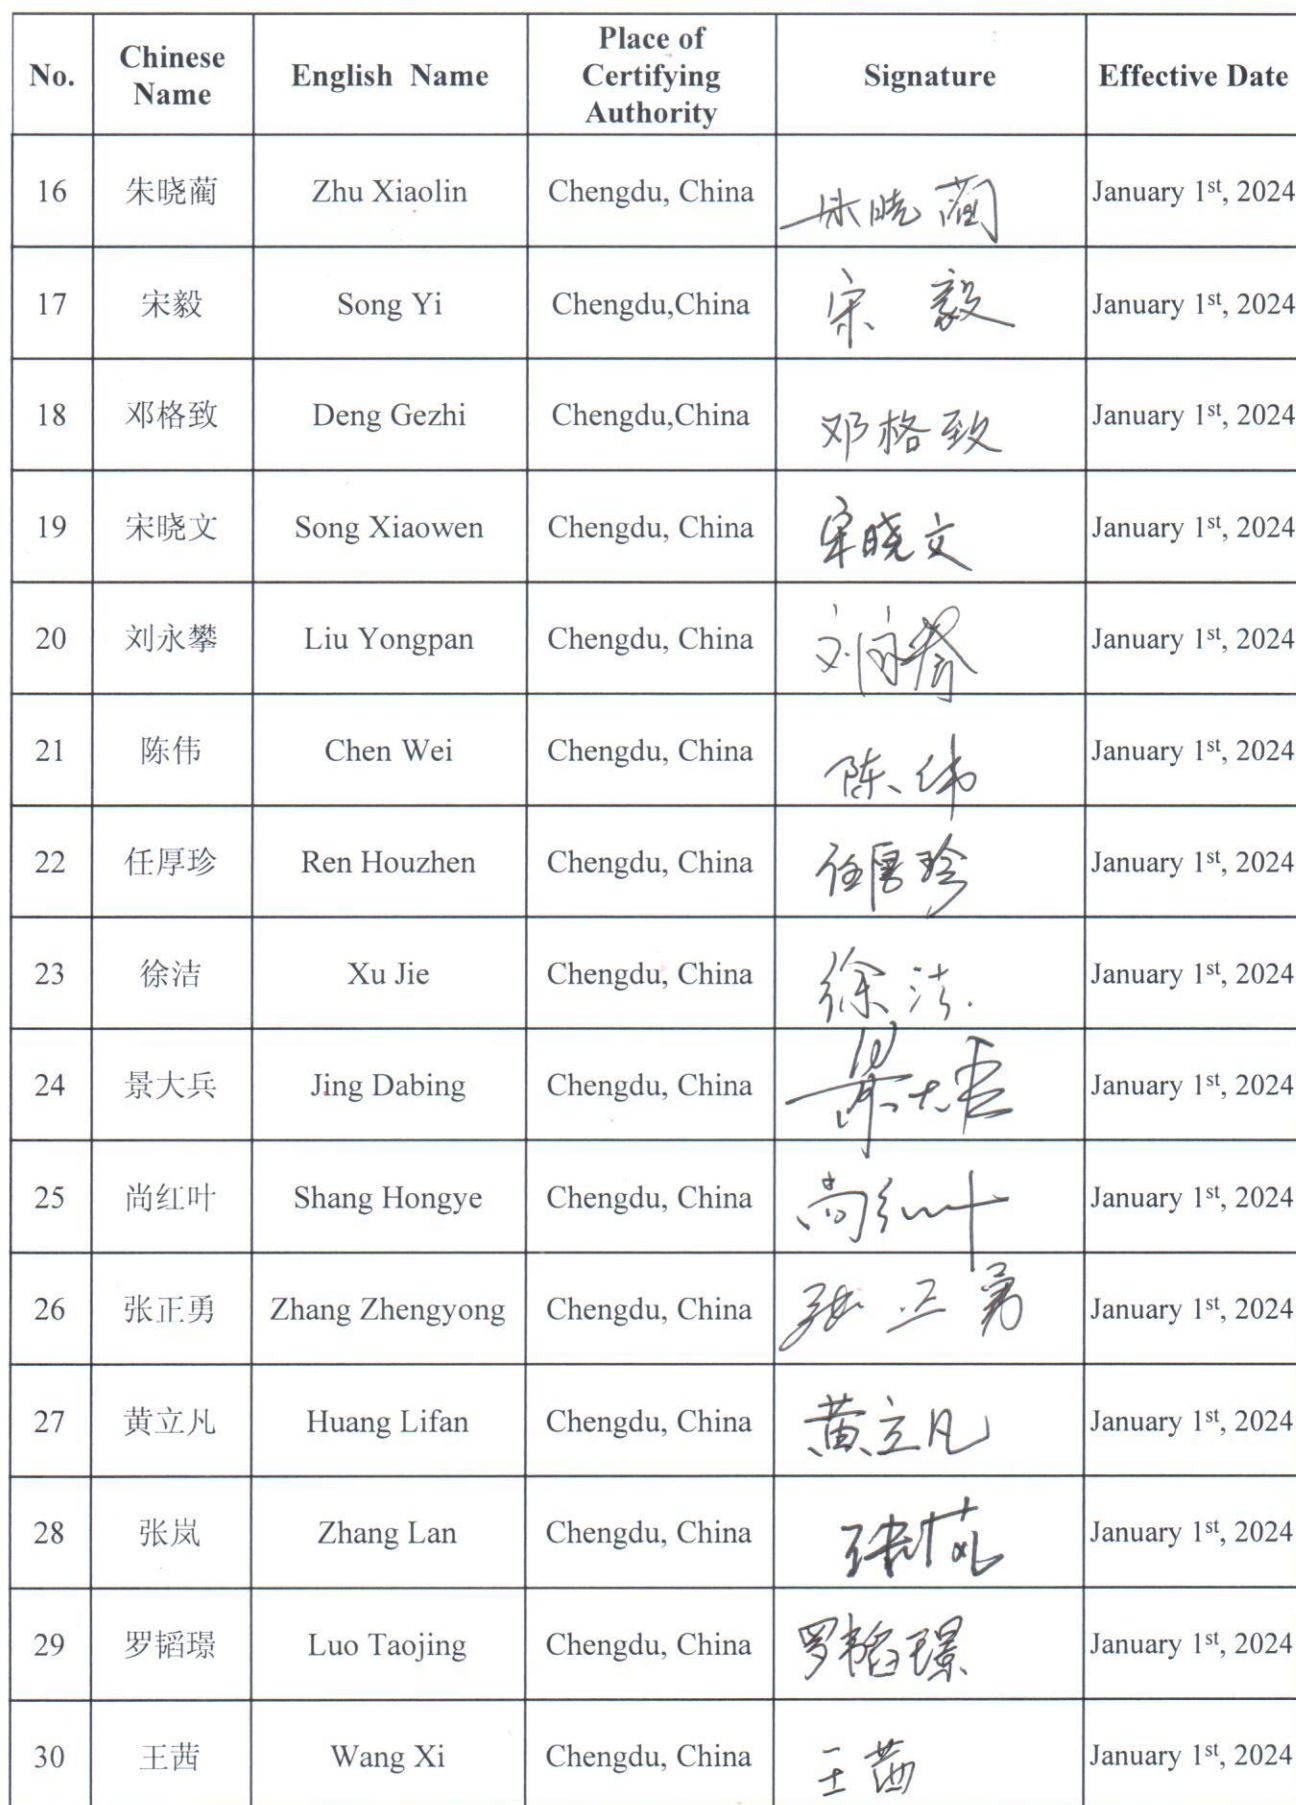 No. Chinese Name English Name Place of Certifying Authority Signature Effective Date
16 朱晓蔺 Zhu Xiaolin Chengdu, China 朱晓蔺 January 1st, 2024
17 宋毅 Song Yi Chengdu,China 宋毅 January 1st, 2024
18 邓格致 Deng Gezhi Chengdu,China 邓格致 January 1st, 2024
19 宋晓文 Song Xiaowen Chengdu, China 宋晓文 January 1st, 2024
20 刘永攀 Liu Yongpan Chengdu, China 刘永攀 January 1st, 2024
21 陈伟 Chen Wei Chengdu, China 陈伟 January 1st, 2024
22 任厚珍 Ren Houzhen Chengdu, China 任厚珍 January 1st, 2024
23 徐洁 Xu Jie Chengdu, China 徐洁 January 1st, 2024
24 景大兵 Jing Dabing Chengdu, China 景大兵 January 1st, 2024
25 尚红叶 Shang Hongye Chengdu, China 尚红叶 January 1st, 2024
26 张正勇 Zhang Zhengyong Chengdu, China 张正勇 January 1st, 2024
27 黄立凡 Huang Lifan Chengdu, China 黄立凡 January 1st, 2024
28 张岚 Zhang Lan Chengdu, China 张岚 January 1st, 2024
29 罗韬璟 Luo Taojing Chengdu, China 罗韬璟 January 1st, 2024
30 王茜 Wang Xi Chengdu, China 王茜 January 1st, 2024